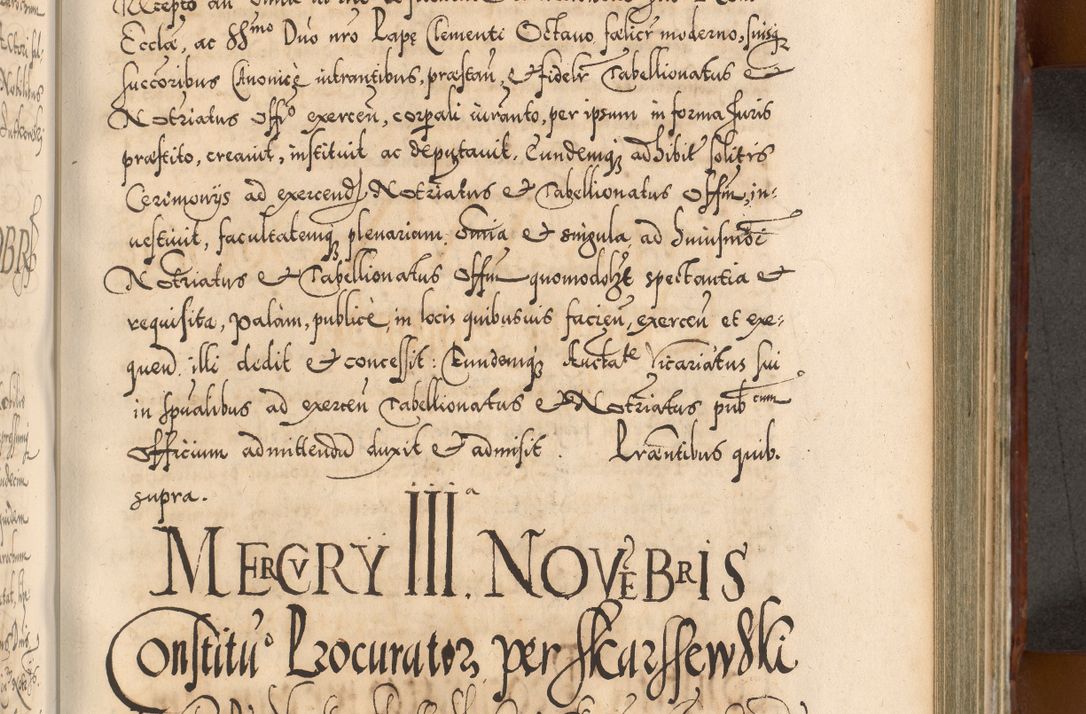 Eccłæ, ac SSmo Dno nro Papę Clementi Octauo fœlicr moderno, suisq
succoribus Canonicè intrantibus, præstan, et fidelr Tabellionatus et
Notriatus offo exerceñ, corpali iuranto, per ipsum in forma Juris
præstito, creauit, instituit ac deputauit. Eundemq adhibit solitis
Cerimonijs ad exercend Notriatus et Tabellionatus Offm, in-
uestiuit, facultatemq plenariam omia et singula ad huiusmoi
Notriatus et Tabellionatus Offm quomodolzt spectantia et
requisita, palàm, publicè, in locis quibusuis facieñ, exerceñ et exe-
quend illi dedit et concessit: Eundemq Auctate Vicariatus sui
in spualibus ad exerceñ Tabellionatus et Notriatus pubcum
Officium admittendũ duxit et admisit. Præntibus quib.
supra.
MERCVRY IIIa. NOVEBRIS
Constituo Procurator per Skarssewski